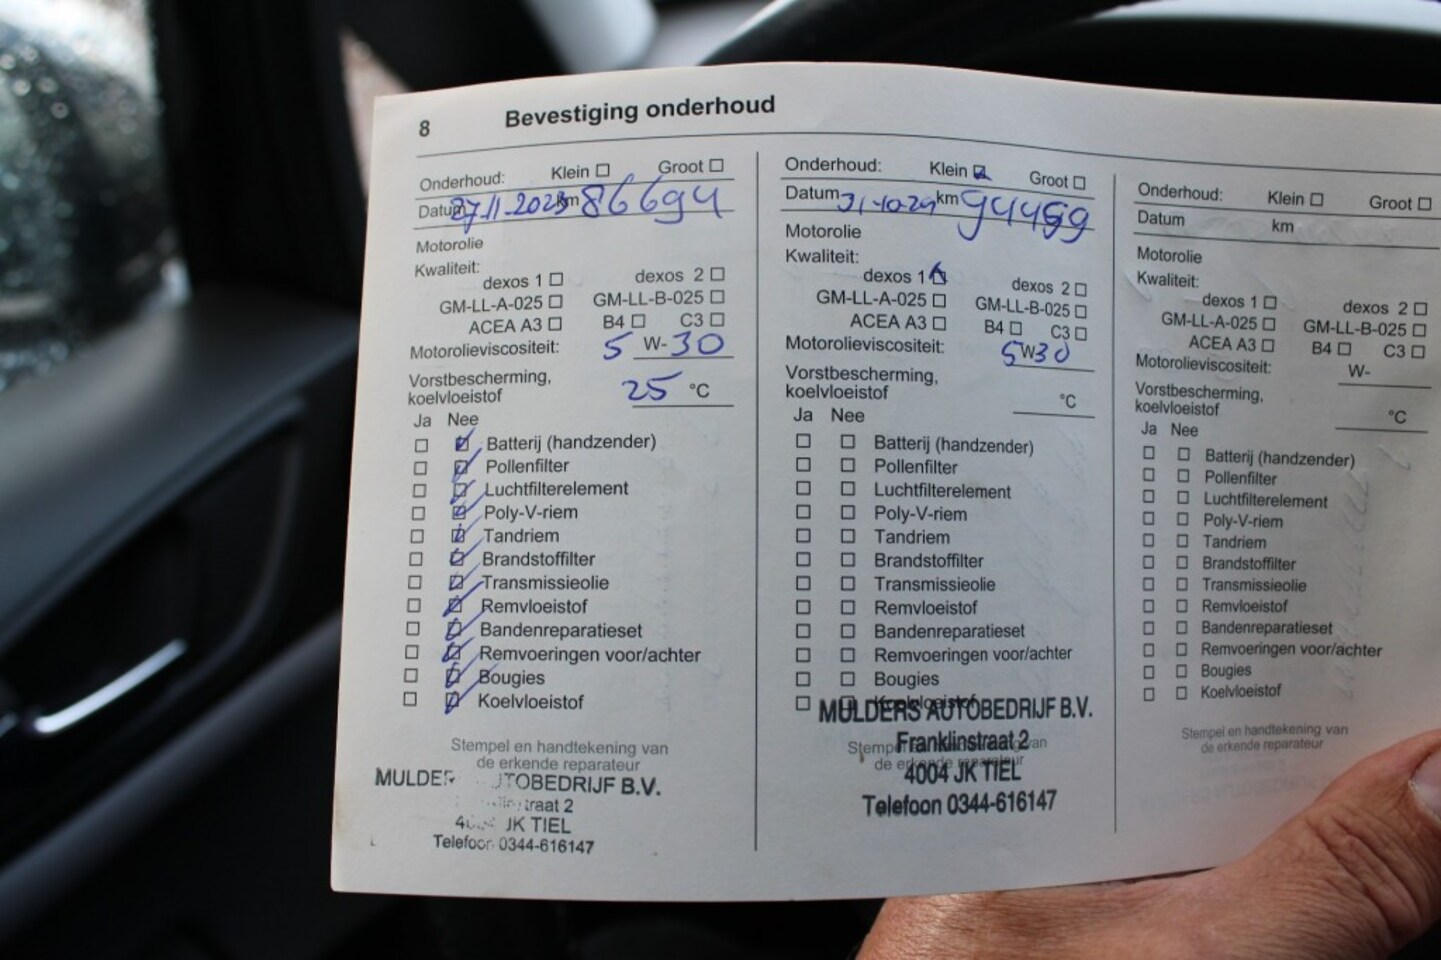 8 Bevestiging onderhoud
Onderhoud: Klein ☐ Groot ☐
Datum 27-11-2023 km 86694
Motorolie
Kwaliteit:
dexos 1 ☐ dexos 2 ☐
GM-LL-A-025 ☐ GM-LL-B-025 ☐
ACEA A3 ☐ B4 ☐ C3 ☐
Motorolieviscositeit: 5 W-30
Vorstbescherming,
koelvloeistof 25 °C
Ja Nee
☐ ☑ Batterij (handzender)
☐ ☑ Pollenfilter
☐ ☑ Luchtfilterelement
☐ ☑ Poly-V-riem
☐ ☑ Tandriem
☐ ☑ Brandstoffilter
☐ ☑ Transmissieolie
☐ ☑ Remvloeistof
☐ ☑ Bandenreparatieset
☐ ☑ Remvoeringen voor/achter
☐ ☑ Bougies
☐ ☑ Koelvloeistof
Stempel en handtekening van
de erkende reparateur
MULDER UTOBEDRIJF B.V.
traat 2
JK TIEL
Telefoon 0344-616147
Onderhoud: Klein ☑ Groot ☐
Datum 31-10-24 km 94459
Motorolie
Kwaliteit:
dexos 1 ☑ dexos 2 ☐
GM-LL-A-025 ☐ GM-LL-B-025 ☐
ACEA A3 ☐ B4 ☐ C3 ☐
Motorolieviscositeit: 5W30
Vorstbescherming,
koelvloeistof °C
Ja Nee
☐ ☐ Batterij (handzender)
☐ ☐ Pollenfilter
☐ ☐ Luchtfilterelement
☐ ☐ Poly-V-riem
☐ ☐ Tandriem
☐ ☐ Brandstoffilter
☐ ☐ Transmissieolie
☐ ☐ Remvloeistof
☐ ☐ Bandenreparatieset
☐ ☐ Remvoeringen voor/achter
☐ ☐ Bougies
☐ ☐ Koelvloeistof
Stempel en handtekening van
de erkende reparateur
MULDERS AUTOBEDRIJF B.V.
Franklinstraat 2
4004 JK TIEL
Telefoon 0344-616147
Onderhoud: Klein ☐ Groot ☐
Datum km
Motorolie
Kwaliteit:
dexos 1 ☐ dexos 2 ☐
GM-LL-A-025 ☐ GM-LL-B-025 ☐
ACEA A3 ☐ B4 ☐ C3 ☐
Motorolieviscositeit: W-
Vorstbescherming,
koelvloeistof °C
Ja Nee
☐ ☐ Batterij (handzender)
☐ ☐ Pollenfilter
☐ ☐ Luchtfilterelement
☐ ☐ Poly-V-riem
☐ ☐ Tandriem
☐ ☐ Brandstoffilter
☐ ☐ Transmissieolie
☐ ☐ Remvloeistof
☐ ☐ Bandenreparatieset
☐ ☐ Remvoeringen voor/achter
☐ ☐ Bougies
☐ ☐ Koelvloeistof
Stempel en handtekening van
de erkende reparateur